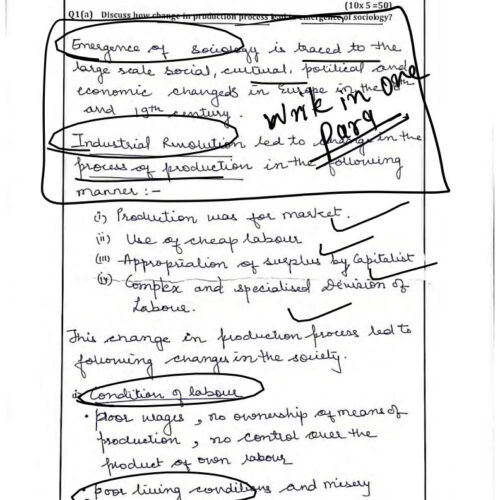 (10x 5 =50)
Q1(a) Discuss how change in production process led to emergence of sociology?
Emergence of sociology is traced to the
large scale social, cultural, political and
economic changed in Europe in the
and 19th century.
Write in one
Para
Industrial Revolution led to change in the
process of production in the following
manner :-
(i) Production was for market.
(ii) Use of cheap labour
(iii) Appropriation of surplus by Capitalist
(iv) Complex and specialised Division of
Labour.
This change in production process led to
following changes in the society.
Condition of labour
• Poor wages, no ownership of means of
production, no control over the
product of own labour
• Poor living conditions and misery